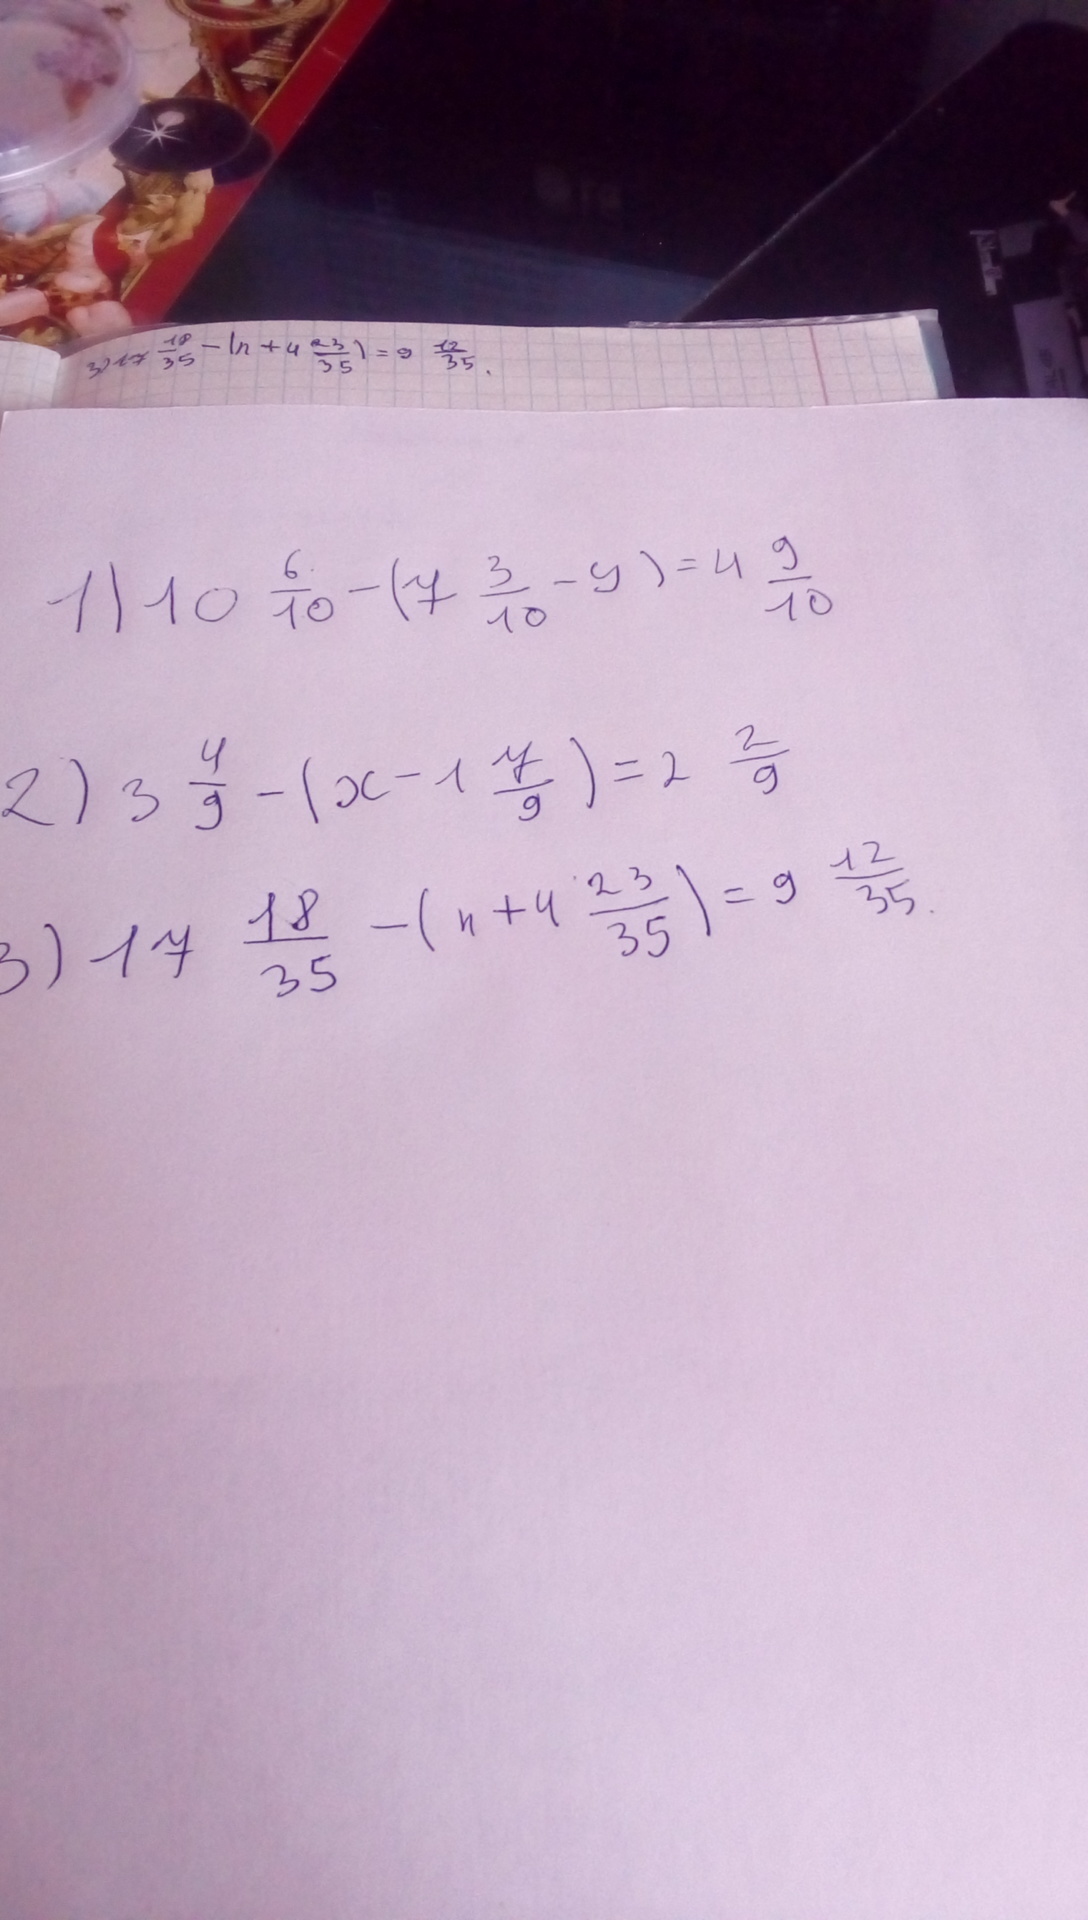 3) 17 18/35 - (n + 4 23/35) = 9 12/35.
1) 10 6/10 - (7 3/10 - y) = 4 9/10
2) 3 4/9 - (x - 1 7/9) = 2 2/9
3) 17 18/35 - (n + 4 23/35) = 9 12/35.